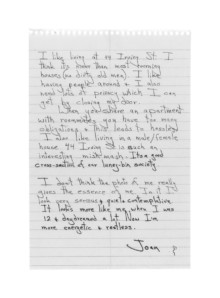 I like living at 14 Irving St. I
think its nicer than most rooming
houses (no dirty old men). I like
having people around & I also
need lots of privacy which I can
get by closing my door.
When you share an apartment
with roommates you have too many
obligations & this leads to hassles.
I also like living in a male/female
house. 14 Irving St is such an
interesting mish mash. Its a good
cross-section of our lonely society.
I don't think the photo of me really
gives the essence of me. In it I
look very serious & quiet & contemplative.
It looks more like me when I was
12 & daydreamed a lot. Now I'm
more energetic & restless.
Joan